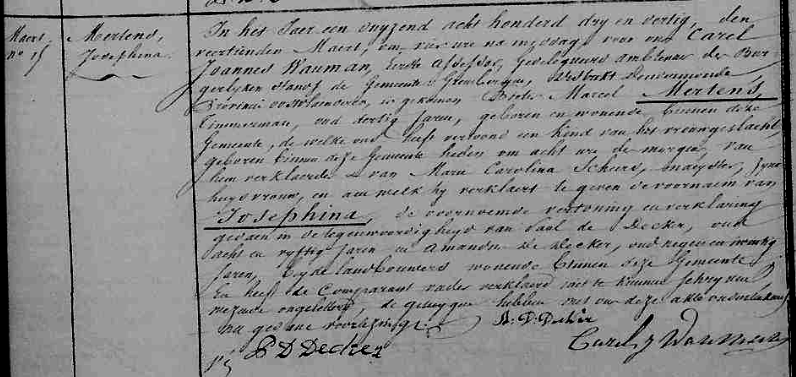 Maert
no 15
Mertens,
Josephina.
In het Jaer een duyzend acht honderd dry en dertig, den
veertienden Maert, om vier ure na middag voor ons Carel
Joannes Wauman, Eerste Assessor, gedelegueerd ambtenaer der Bur-
gerlyken stand der Gemeente Grembergen, District Dendermonde
Provincie oostvlaenderen, is gekomen Pieter Marcel Mertens,
Timmerman, oud dertig Jaren, geboren en wonende binnen deze
Gemeente, de welke ons heeft vertoond een kind van het vrouwgeslacht
geboren binnen deze Gemeente heden om acht ure de morgen, van
hem verklaerde en van Maria Carolina Scheirs, naeyster, zyne
huysvrouw, en aen welk hy verklaert te geven de voornaem van
Josephina, de voornoemde vertoning en verklaring
gedaen in de tegenwoordigheyd van de Decker, oud
acht en vyftig Jaren en Amandus De Decker, oud negen en twintig
Jaren, beyde landbouwers wonende binnen deze Gemeente
En heeft de Comparant vader verklaerd niet te kunnen schryven
mitsgade ongeletterd, de getuygen hebben met ons deze akte onderteekend
na gedane voorlezinge.
A. D. Decker
P D Decker
Carel J Wauman